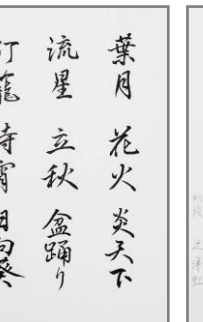 葉月 花火 炎天下
流星 立秋 盆踊り
灯籠 待宵 向日葵